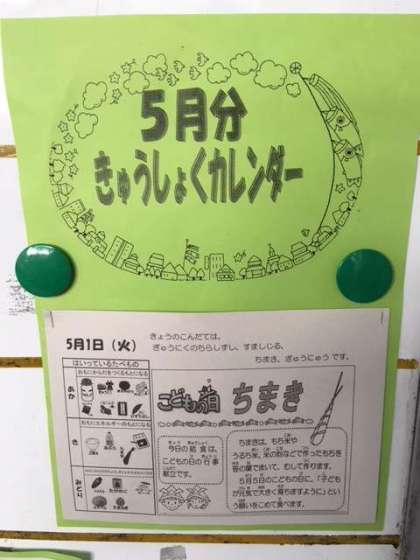 5月分
きゅうしょくカレンダー
5月1日（火）
きょうのこんだては、
ぎゅうにくのちらしずし、すましじる、
ちまき、ぎゅうにゅう です。
はいっているたべもの
あか
き
みどり
こどもの日 ちまき
今日の給食は、
こどもの日の行事
献立です。
ちまきは、もち米や
うるち米、米の粉などで作ったもちを
笹の葉で巻いて、むして作ります。
5月5日のこどもの日に、「子ども
が元気で大きく育ちますように」とい
う願いをこめて食べます。